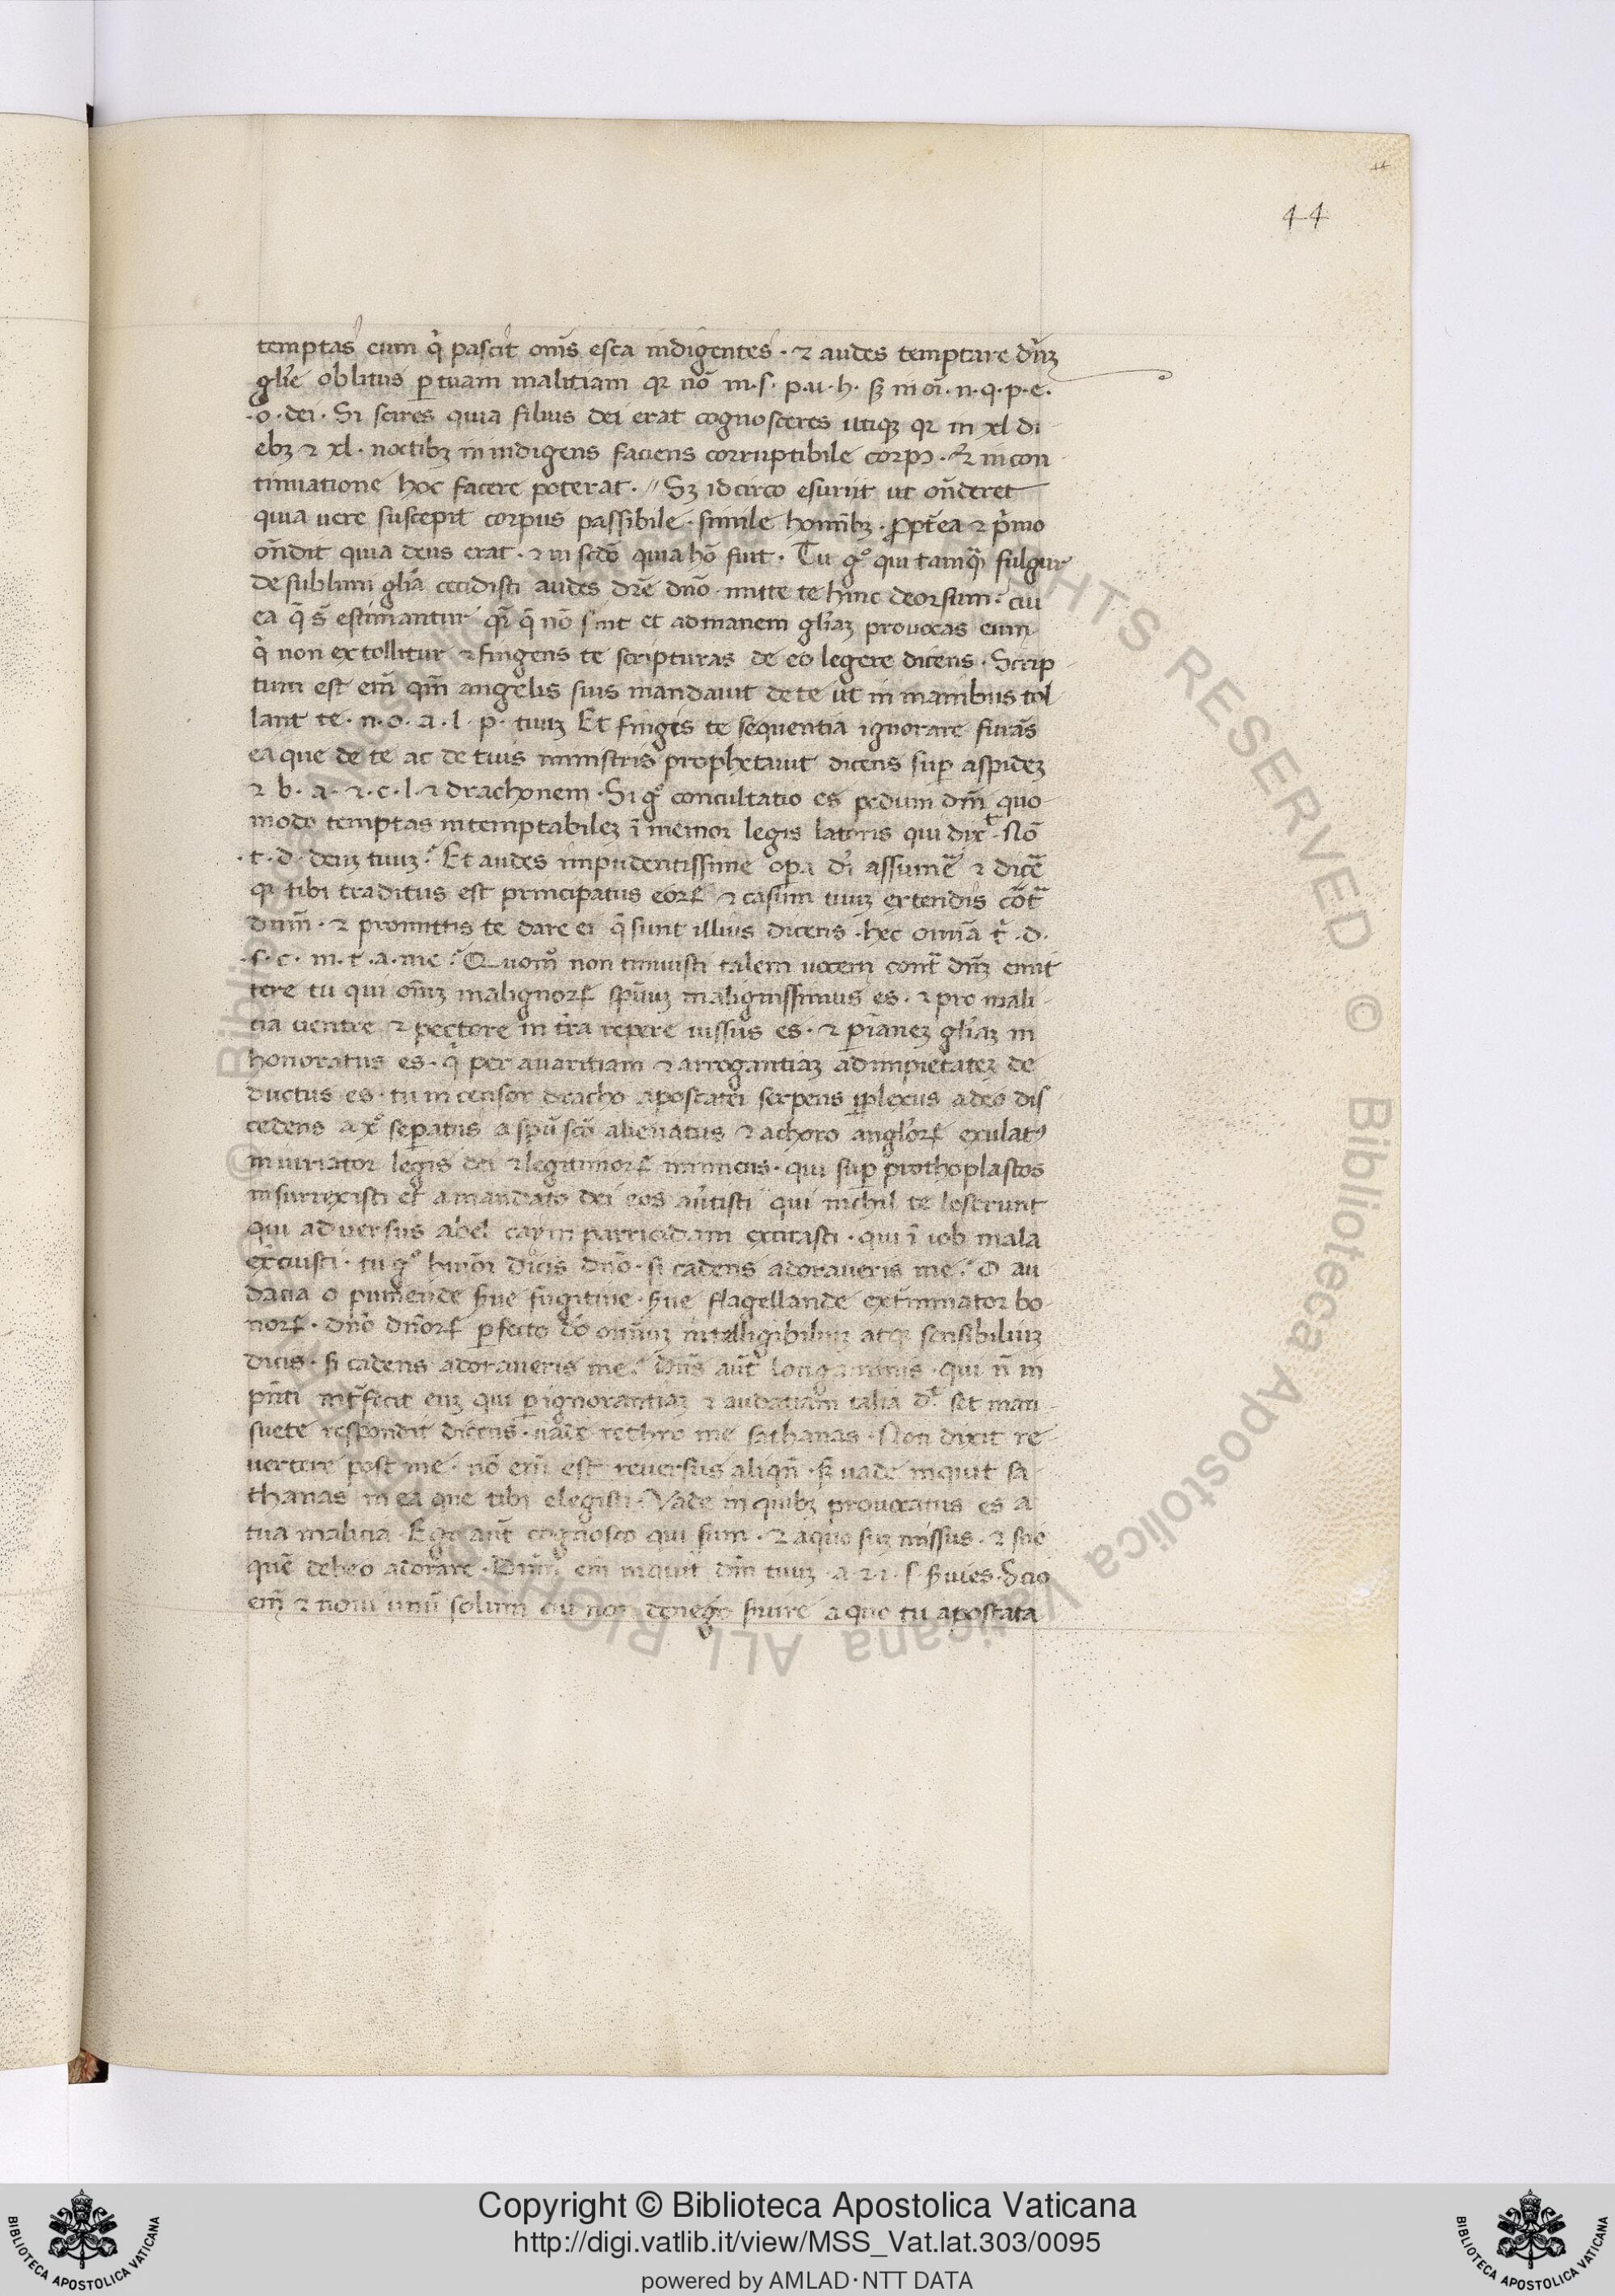 44
temptas eum q̇ pascit om̄s esca indigentes · ⁊ audes temptare dn̄ꝫ
glīe oblitus ꝑ tuam malitiam qꝛ nō · in · s · p · u · h · sꝫ in oī · n · q · p · e ·
· o · dei · Si scires quia filius dei erat cognosceres utiqꝫ qꝛ in xl di
ebꝫ ⁊ xl · noctibꝫ in indigens faciens corruptibile corpꝰ · ⁊ in con
tinuatione hoc facere poterat · // Sꝫ idcirco esuriit ut on̄deret
quia uere suscepit corpus passibile · simile hoīnibꝫ · ꝓpt̄ea ⁊ p̄mo
on̄dit quia deus erat · ⁊ in scd̄o quia hō fuit · Tu gº qui tamq̄ fulgur
de sublimi glīa cecidisti audes dr̄e dn̄o · mitte te hinc deorsum · cui
ea q̄ s̄ estimantur q̄ q̄ nō sint et ad inanem glīaꝫ prouocas eum
q̇ non extollitur ⁊ fingens te scripturas de eo legere dicens · Scrip
tum est em̄ qm̄ angelis suis mandauit de te ut in manibus tol
lant te · n · o · a · l · p · tuuꝫ Et fingis te sequentia ignorare furās
ea que de te ac de tuis ministris prophetauit dicens suꝑ aspideꝫ
⁊ b · a · ⁊ · c · l · ⁊ drachonem · Si gº conculcatio es pedum dn̄i quo
modo temptas intemptabileꝫ īmemor legis latoris qui dixᵗ · Nō
· t · d · deuꝫ tuuꝫ · Et audes impudentissime oꝑa dī assumē ⁊ dicē
qꝛ tibi traditus est principatus eoꝝ ⁊ casum tuuꝫ extendis cōt̄
dn̄m · ⁊ promittis te dare ei q̄ sunt illius dicens · hec omīa t̄ · d ·
· s · c · in · t · a · me · Quomō non timuisti talem uocem cont̄ dn̄ꝫ emit
tere tu qui om̄iꝫ malignoꝝ spūuꝫ malignissimus es · ⁊ pro mali
tia uentre ⁊ pectore in t̄ra repere iussus es · ⁊ ꝑ inaneꝫ glīaꝫ in
honoratus es · q̇ per auaritiam ⁊ arrogantiaꝫ ad impietateꝫ de
ductus es · tu incensor dracho apostata serpens ꝑplexus a deo dis
cedens a xº seꝑatus a spū scō alienatus ⁊ a choro angloꝝ exulatꝰ
iniuriator legis dei ⁊ legitimoꝝ inimicus · qui suꝑ prothoplastos
insurrexisti et a mandato dei eos au̇tisti qui nichil te leserunt
qui aduersus abel cayin parricidam excitasti · qui ī iob mala
exercuisti · tu gº dicis dn̄o · si cadens adoraueris me · O au
dacia o puniende s̄ue fugitiue · s̄ue flagellande ext̄minator bo
noꝝ · dn̄o dn̄oꝝ ꝑfecto dō omniuꝫ intelligibiliuꝫ atqꝫ sensibiliuꝫ
dicis · si cadens adoraueris me · Dn̄s aūt longanimis · qui n̄ in
pn̄ti int̄fecit euꝫ qui ꝑ ignorantiaꝫ ⁊ audatiam talia dᵗ set man
suete respondit dicens · uade rethro me sathanas · Non dixit re
uertere post me · nō em̄ est reuersus aliqn̄ · sꝫ uade inquit sa
thanas in ea que tibi elegisti · Vade in quibꝫ prouocatus es a
tua malicia Ego aūt cognosco qui sum · ⁊ a quo suꝫ missus · ⁊ scio
quē debeo adorare · Dn̄m em̄ inquit dm̄ tuuꝫ · a · ⁊ · i · s · s̄uies · Scio
em̄ ⁊ noui unū solum cui non denego s̄uire a quo tu apostata
Copyright © Biblioteca Apostolica Vaticana
http://digi.vatlib.it/view/MSS_Vat.lat.303/0095
powered by AMLAD·NTT DATA
BIBLIOTECA APOSTOLICA VATICANA
BIBLIOTECA APOSTOLICA VATICANA
© Biblioteca Apostolica Vaticana ALL RIGHTS RESERVED © Biblioteca Apostolica Vaticana ALL RIGHTS RESERVED